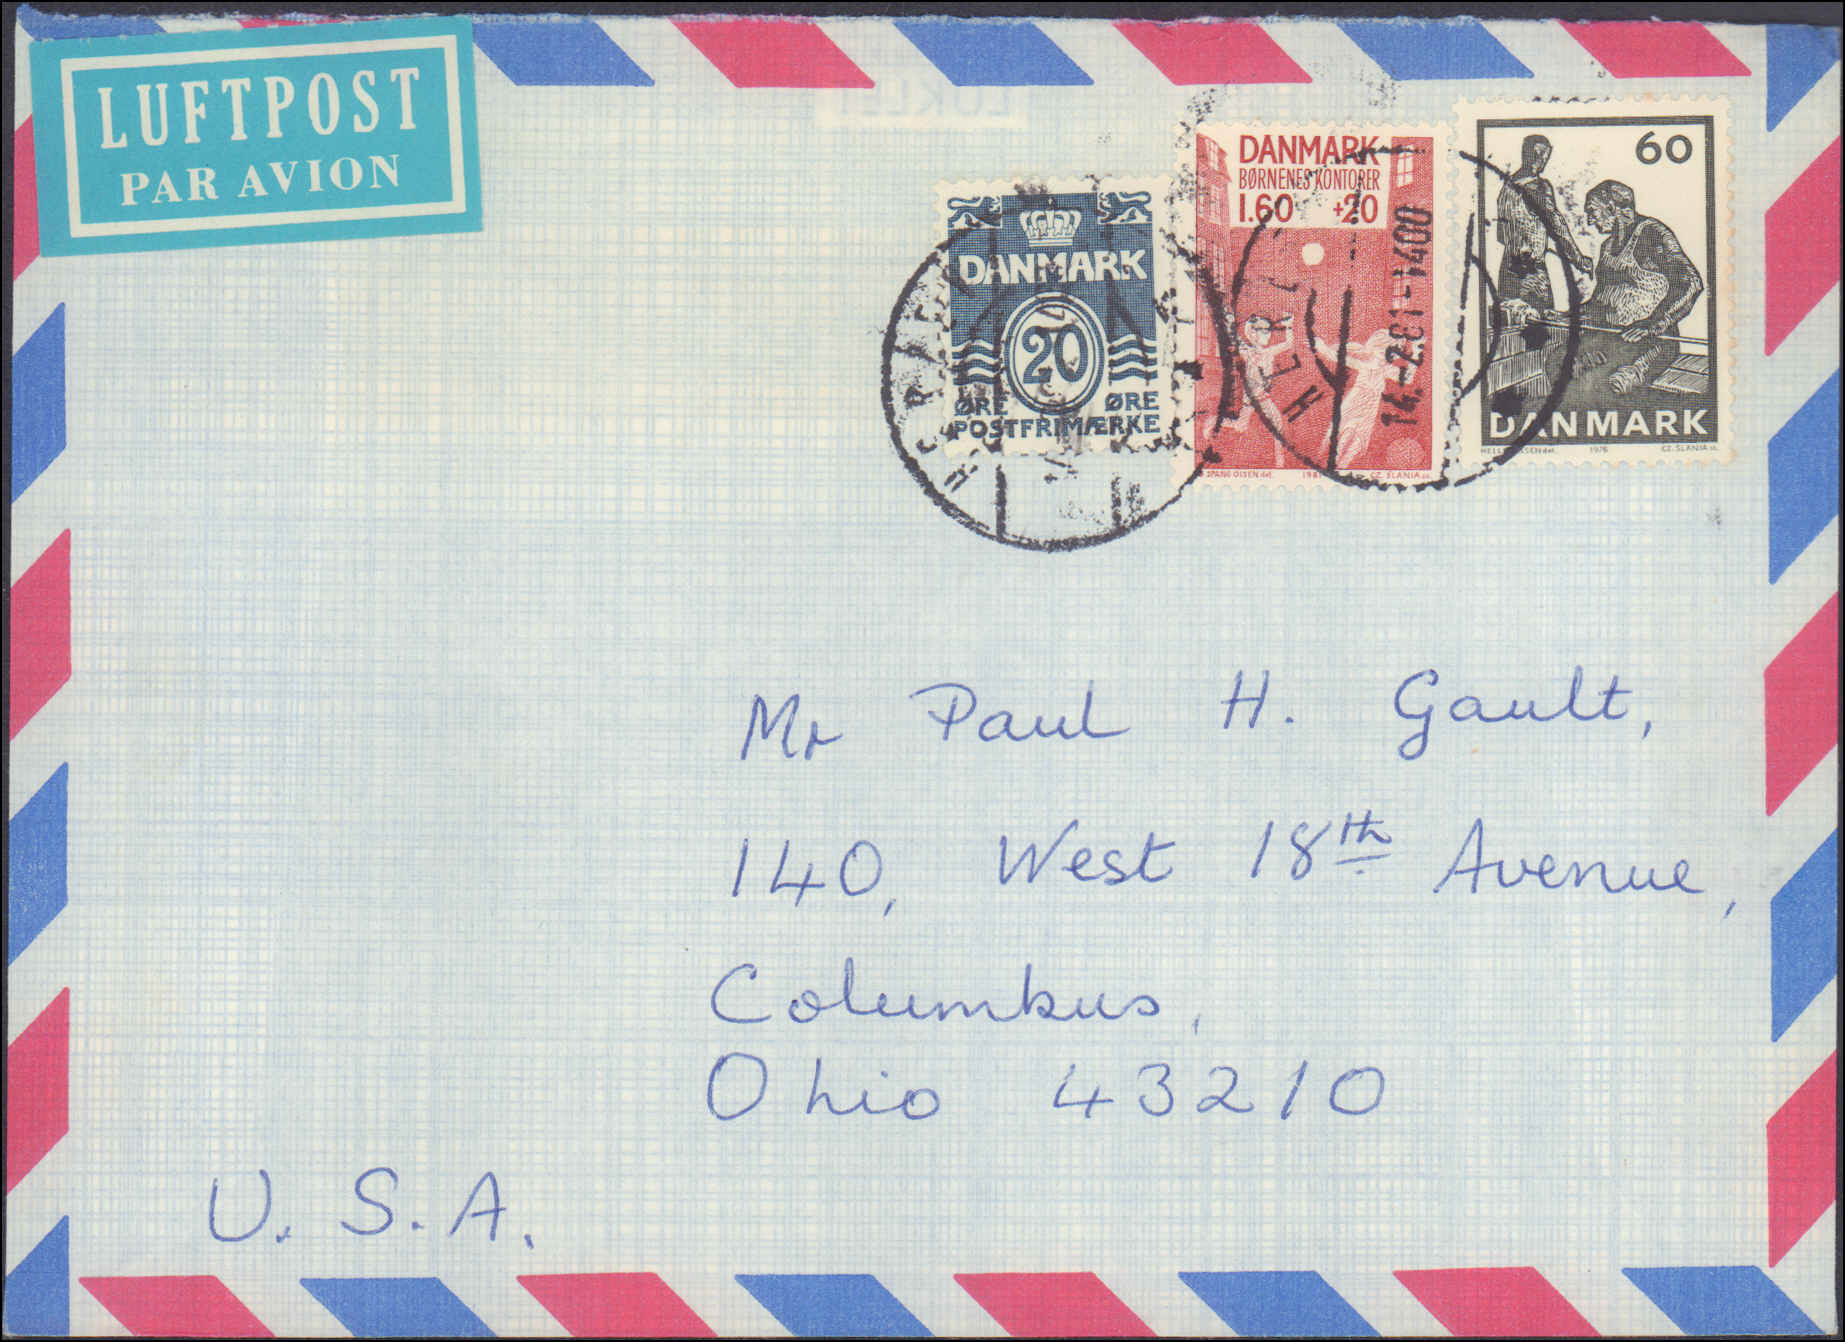 LUFTPOST
PAR AVION
DANMARK
20
ØRE ØRE
POSTFRIMÆRKE
DANMARK
BØRNENES KONTORER
1.60 +20
SPANG OLSEN del. 1981 CZ. SLANIA sc.
60
DANMARK
1976 CZ. SLANIA sc.
14.-2.81-1400
Mr Paul H. Gault,
140, West 18th Avenue,
Columbus,
Ohio 43210
U.S.A.